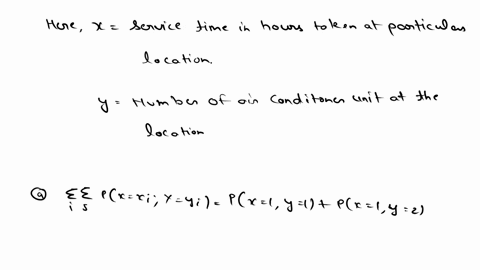 Here, x = service time in hours taken at particular
location.
y = Number of air conditoner unit at the
location
ⓐ Σ Σ P(x=xi; Y=yi) = P(x=1, y=1) + P(x=1, y=2)
i s